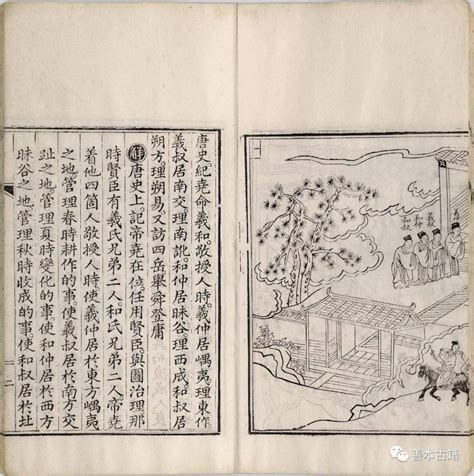 和仲
和叔
唐史紀堯命羲和敬授人時羲仲居嵎夷理東作
羲叔居南交理南訛和仲居昧谷理西成和叔居
朔方理朔易又訪四岳舉舜登庸
解唐史上記帝堯在位任用賢臣與圖治理那
時賢臣有羲氏兄弟二人和氏兄弟二人帝堯
着他四箇人敬授人時使羲仲居於東方嵎夷
之地管理春時耕作的事使羲叔居於南方交
趾之地管理夏時變化的事使和仲居於西方
昧谷之地管理秋時收成的事使和叔居於北
善本古籍